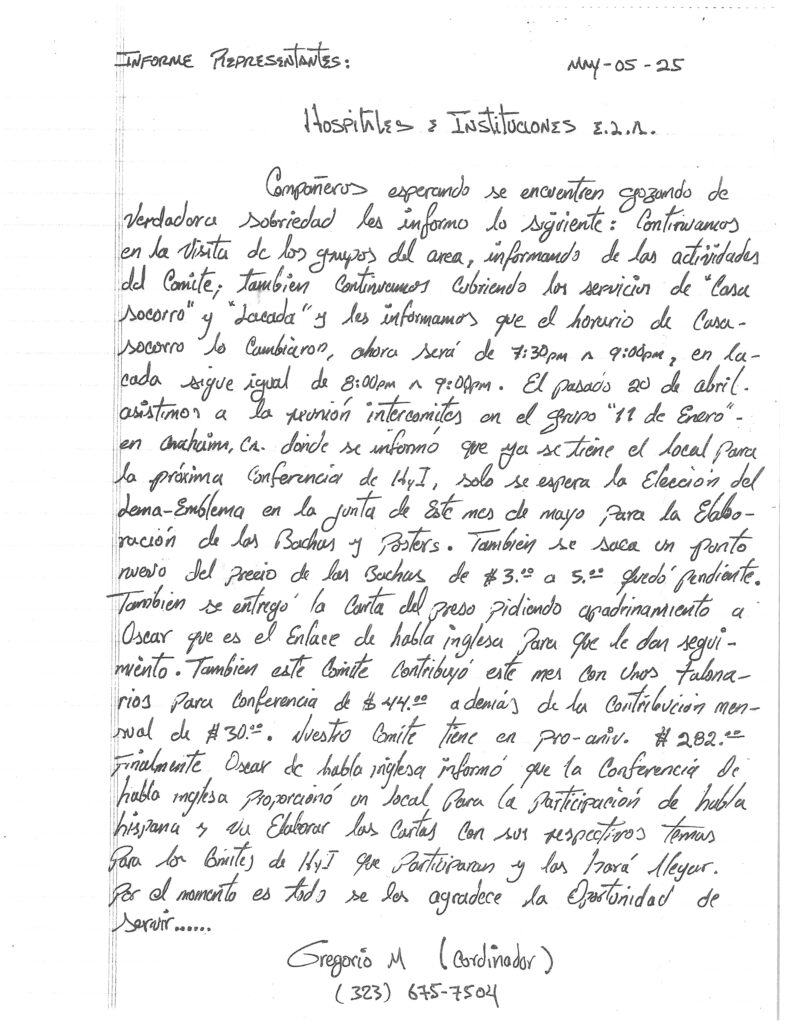 INFORME REPRESENTANTES: MAY-05-25
HOSPITALES E INSTITUCIONES E.L.A.
Compañeros esperando se encuentren gozando de
verdadora sobriedad les informo lo sigüiente: Continuamos
en la visita de los grupos del area, informando de las actividades
del Comite; tambien Continuamos Cubriendo los servicios de "Casa
socorro" y "Lacada" y les informamos que el horario de Casa-
socorro lo Cambiaron, ahora será de 7:30pm A 9:00pm, en la-
cada sigue igual de 8:00pm A 9:00pm. El pasado 20 de abril-
asistimos a la reunión intercomites en el grupo "11 de Enero"-
en Anahaim, Ca. donde se informó que ya se tiene el local para
la próxima Conferencia de HyI, solo se espera la Elección del
Lema-Emblema en la junta de Este mes de mayo para la Elabo-
ración de las Bachas y Posters. También se saca un punto
nuevo del precio de las Bachas de $3.00 a 5.00 quedó pendiente.
Tambien se entregó la Carta del preso pidiendo apadrinamiento a
Oscar que es el Enlace de habla inglesa para que le dan segui-
miento. Tambien este Comite Contribuyó este mes con unos talona-
rios para Conferencia de $44.00 además de la Contribución men-
sual de $30.00. Nuestro Comite tiene en pro-aniv. $282.00
Finalmente Oscar de habla inglesa informó que la Conferencia de
habla inglesa proporcionó un local para la participación de habla
hispana y va Elaborar las Cartas con sus respectivos temas
para los Comites de HyI que participaran y las hará llegar.
Por el momento es todo se les agradece la Oportunidad de
servir......
Gregorio M (Cordinador)
(323) 675-7504